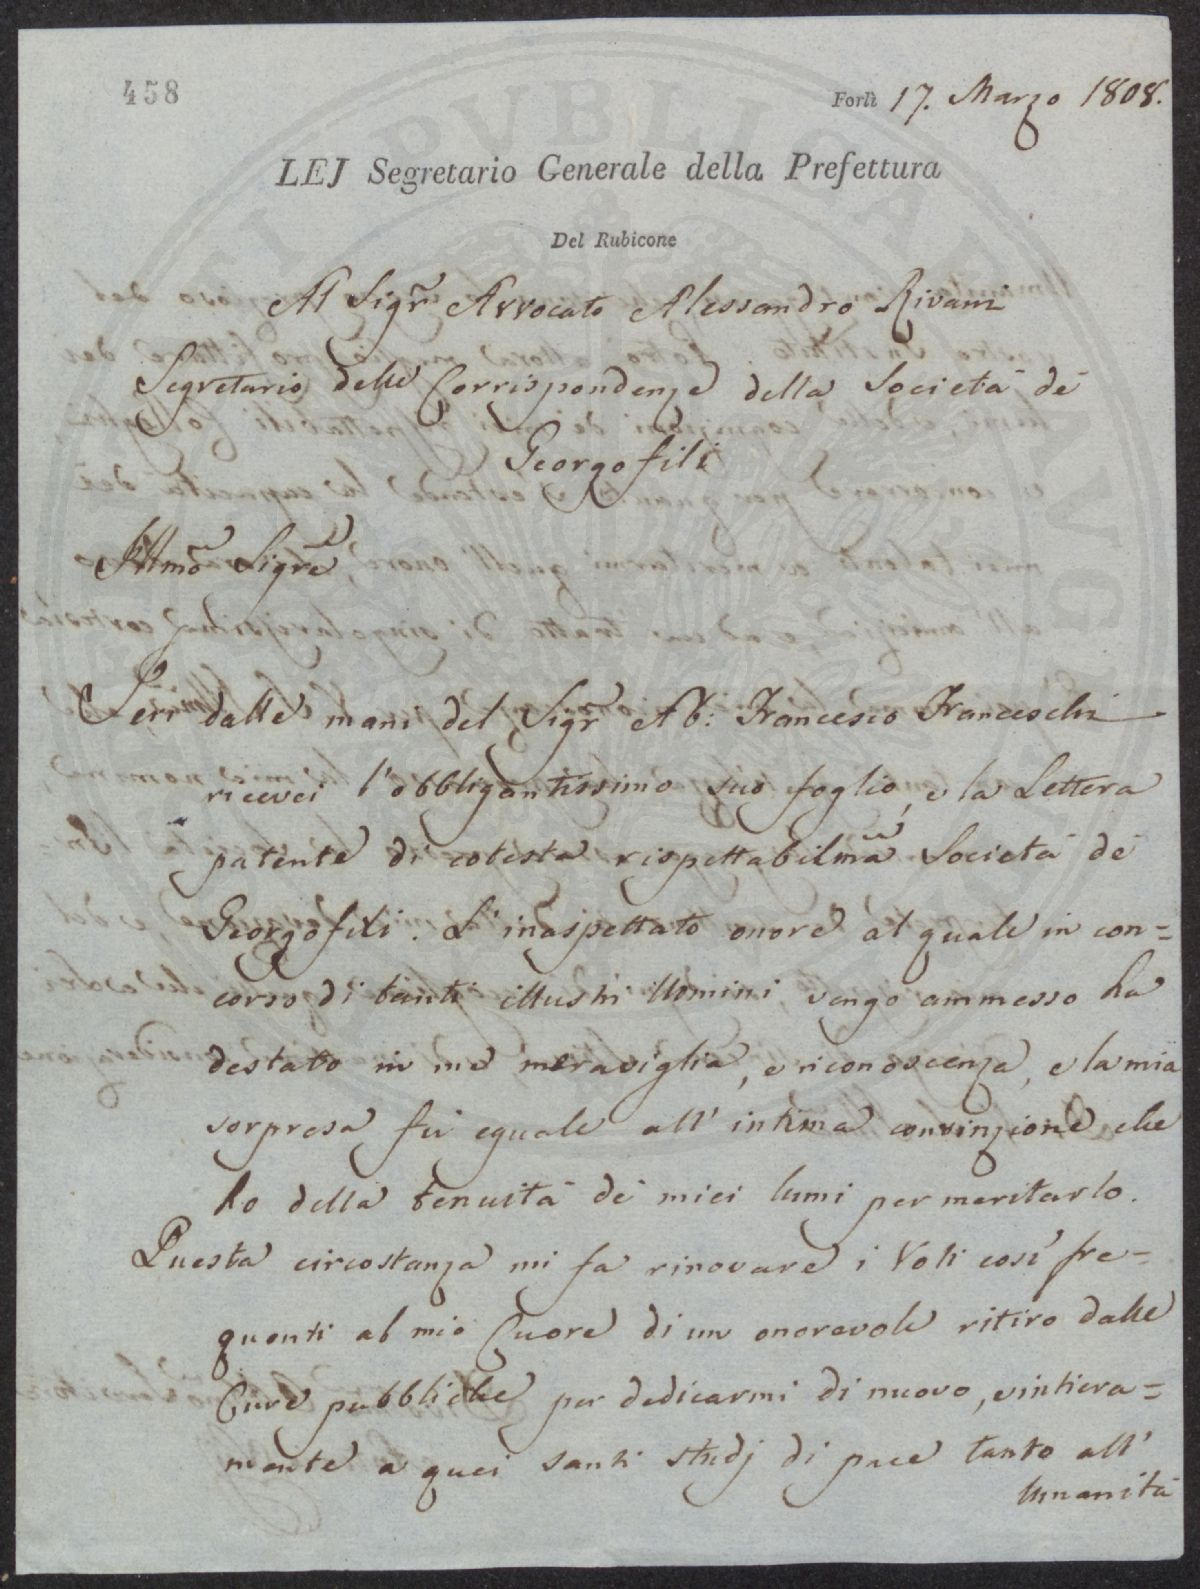 458
Forlì 17. Marzo 1808.
LEJ Segretario Generale della Prefettura
Del Rubicone
Al Sigr Avvocato Alessandro Rivani
Segretario delle Corrispondenze della Società de'
Georgofili
Illmo Sigre
Ieri dalle mani del Sigr Ab: Francesco Franceschi
ricevei l'obbligantissimo suo foglio, e la Lettera
patente di cotesta rispettabilma Società de'
Georgofili. L'inaspettato onore al quale in con=
corso di tanti illustri Uomini vengo ammesso ha
destato in me meraviglia, e riconoscenza, e la mia
sorpresa fù eguale all'intima convinzione che
ho della tenuità de' miei lumi per meritarlo.
Questa circostanza mi fa rinovare i Voti così fre=
quenti al mio Cuore di un onorevole ritiro dalle
Cure pubbliche per dedicarmi di nuovo, e intiera=
mente a quei santi studj di pace tanto all'
Umanità